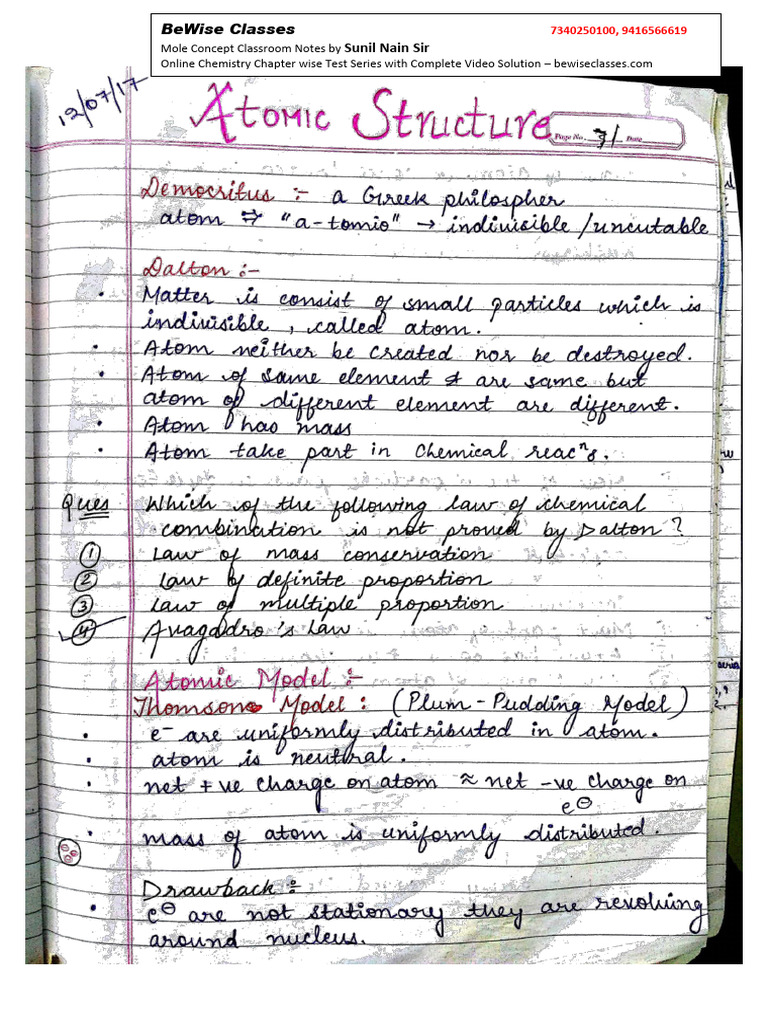 BeWise Classes 7340250100, 9416566619
Mole Concept Classroom Notes by Sunil Nain Sir
Online Chemistry Chapter wise Test Series with Complete Video Solution – bewiseclasses.com
12/07/17
Atomic Structure
Page No. 7/ Date
Democritus :- a Greek philospher
atom ⇒ "a-tomio" → indivisible /uncutable
Dalton :-
• Matter is consist of small particles which is
indivisible, called atom.
• Atom neither be created nor be destroyed.
• Atom of same element are same but
atom of different element are different.
• Atom has mass
• Atom take part in Chemical reacⁿs.
Ques Which of the following law of chemical
combination is not proved by Dalton?
① Law of mass conservation
② Law of definite proportion
③ Law of multiple proportion
④ Avagadro's Law
Atomic Model :-
Thomson Model : (Plum-Pudding Model)
• e⁻ are uniformly distributed in atom.
• atom is neutral.
• net +ve charge on atom ≈ net -ve charge on
e⊖
• mass of atom is uniformly distributed.
Drawback :-
• e⊖ are not stationary they are revolving
around nucleus.